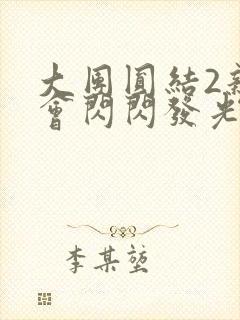 大團圓結2
會閃閃發光
李某堃